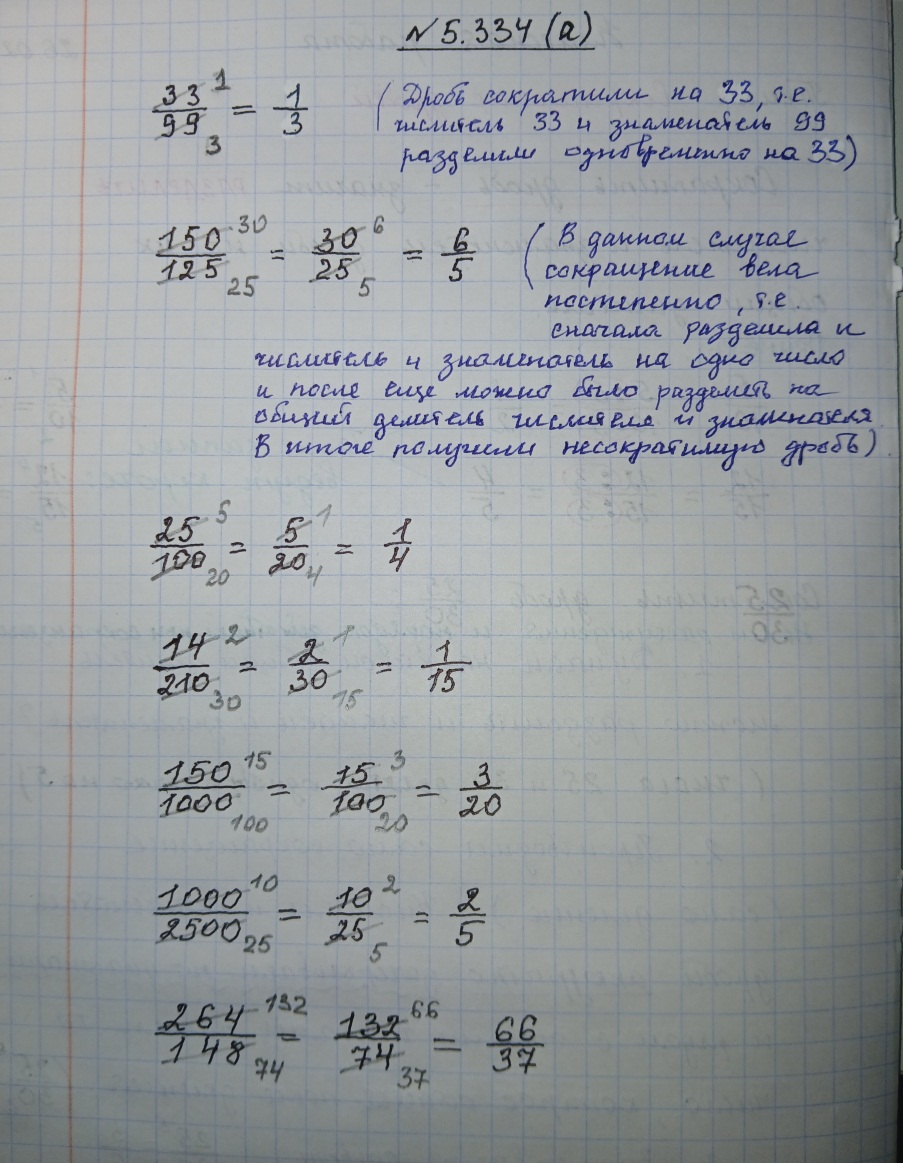 № 5.334 (а)
33/99 1 3 = 1/3 (Дробь сократили на 33, т.е.
числитель 33 и знаменатель 99
разделили одновременно на 33)
150/125 30 25 = 30/25 6 5 = 6/5 (В данном случае
сокращение вела
постепенно, т.е.
сначала разделила и
числитель и знаменатель на одно число
и после еще можно было разделить на
общий делитель числителя и знаменателя.
В итоге получили несократимую дробь)
25/100 5 20 = 5/20 1 4 = 1/4
14/210 2 30 = 2/30 1 15 = 1/15
150/1000 15 100 = 15/100 3 20 = 3/20
1000/2500 10 25 = 10/25 2 5 = 2/5
264/148 132 74 = 132/74 66 37 = 66/37